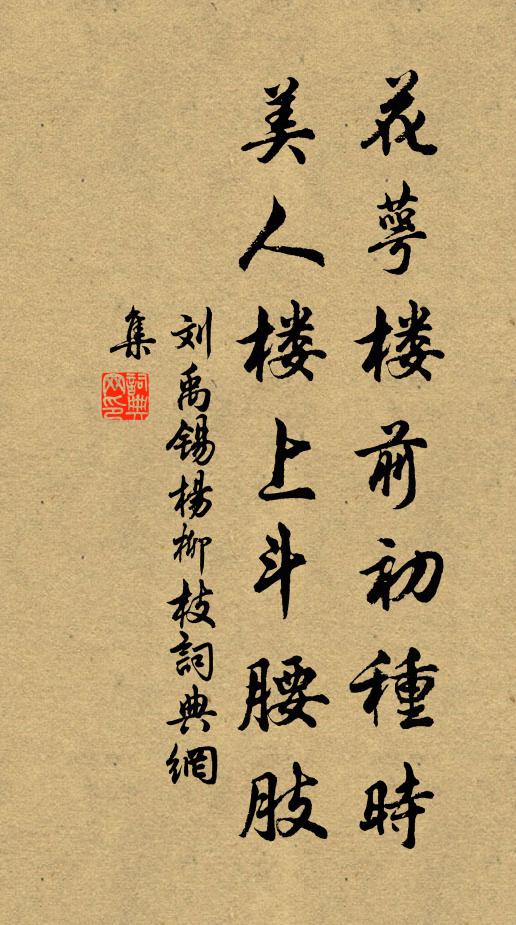 花萼楼前初種時
美人楼上斗腰肢
刘禹锡楊柳枝詞典網
集
詞典網印